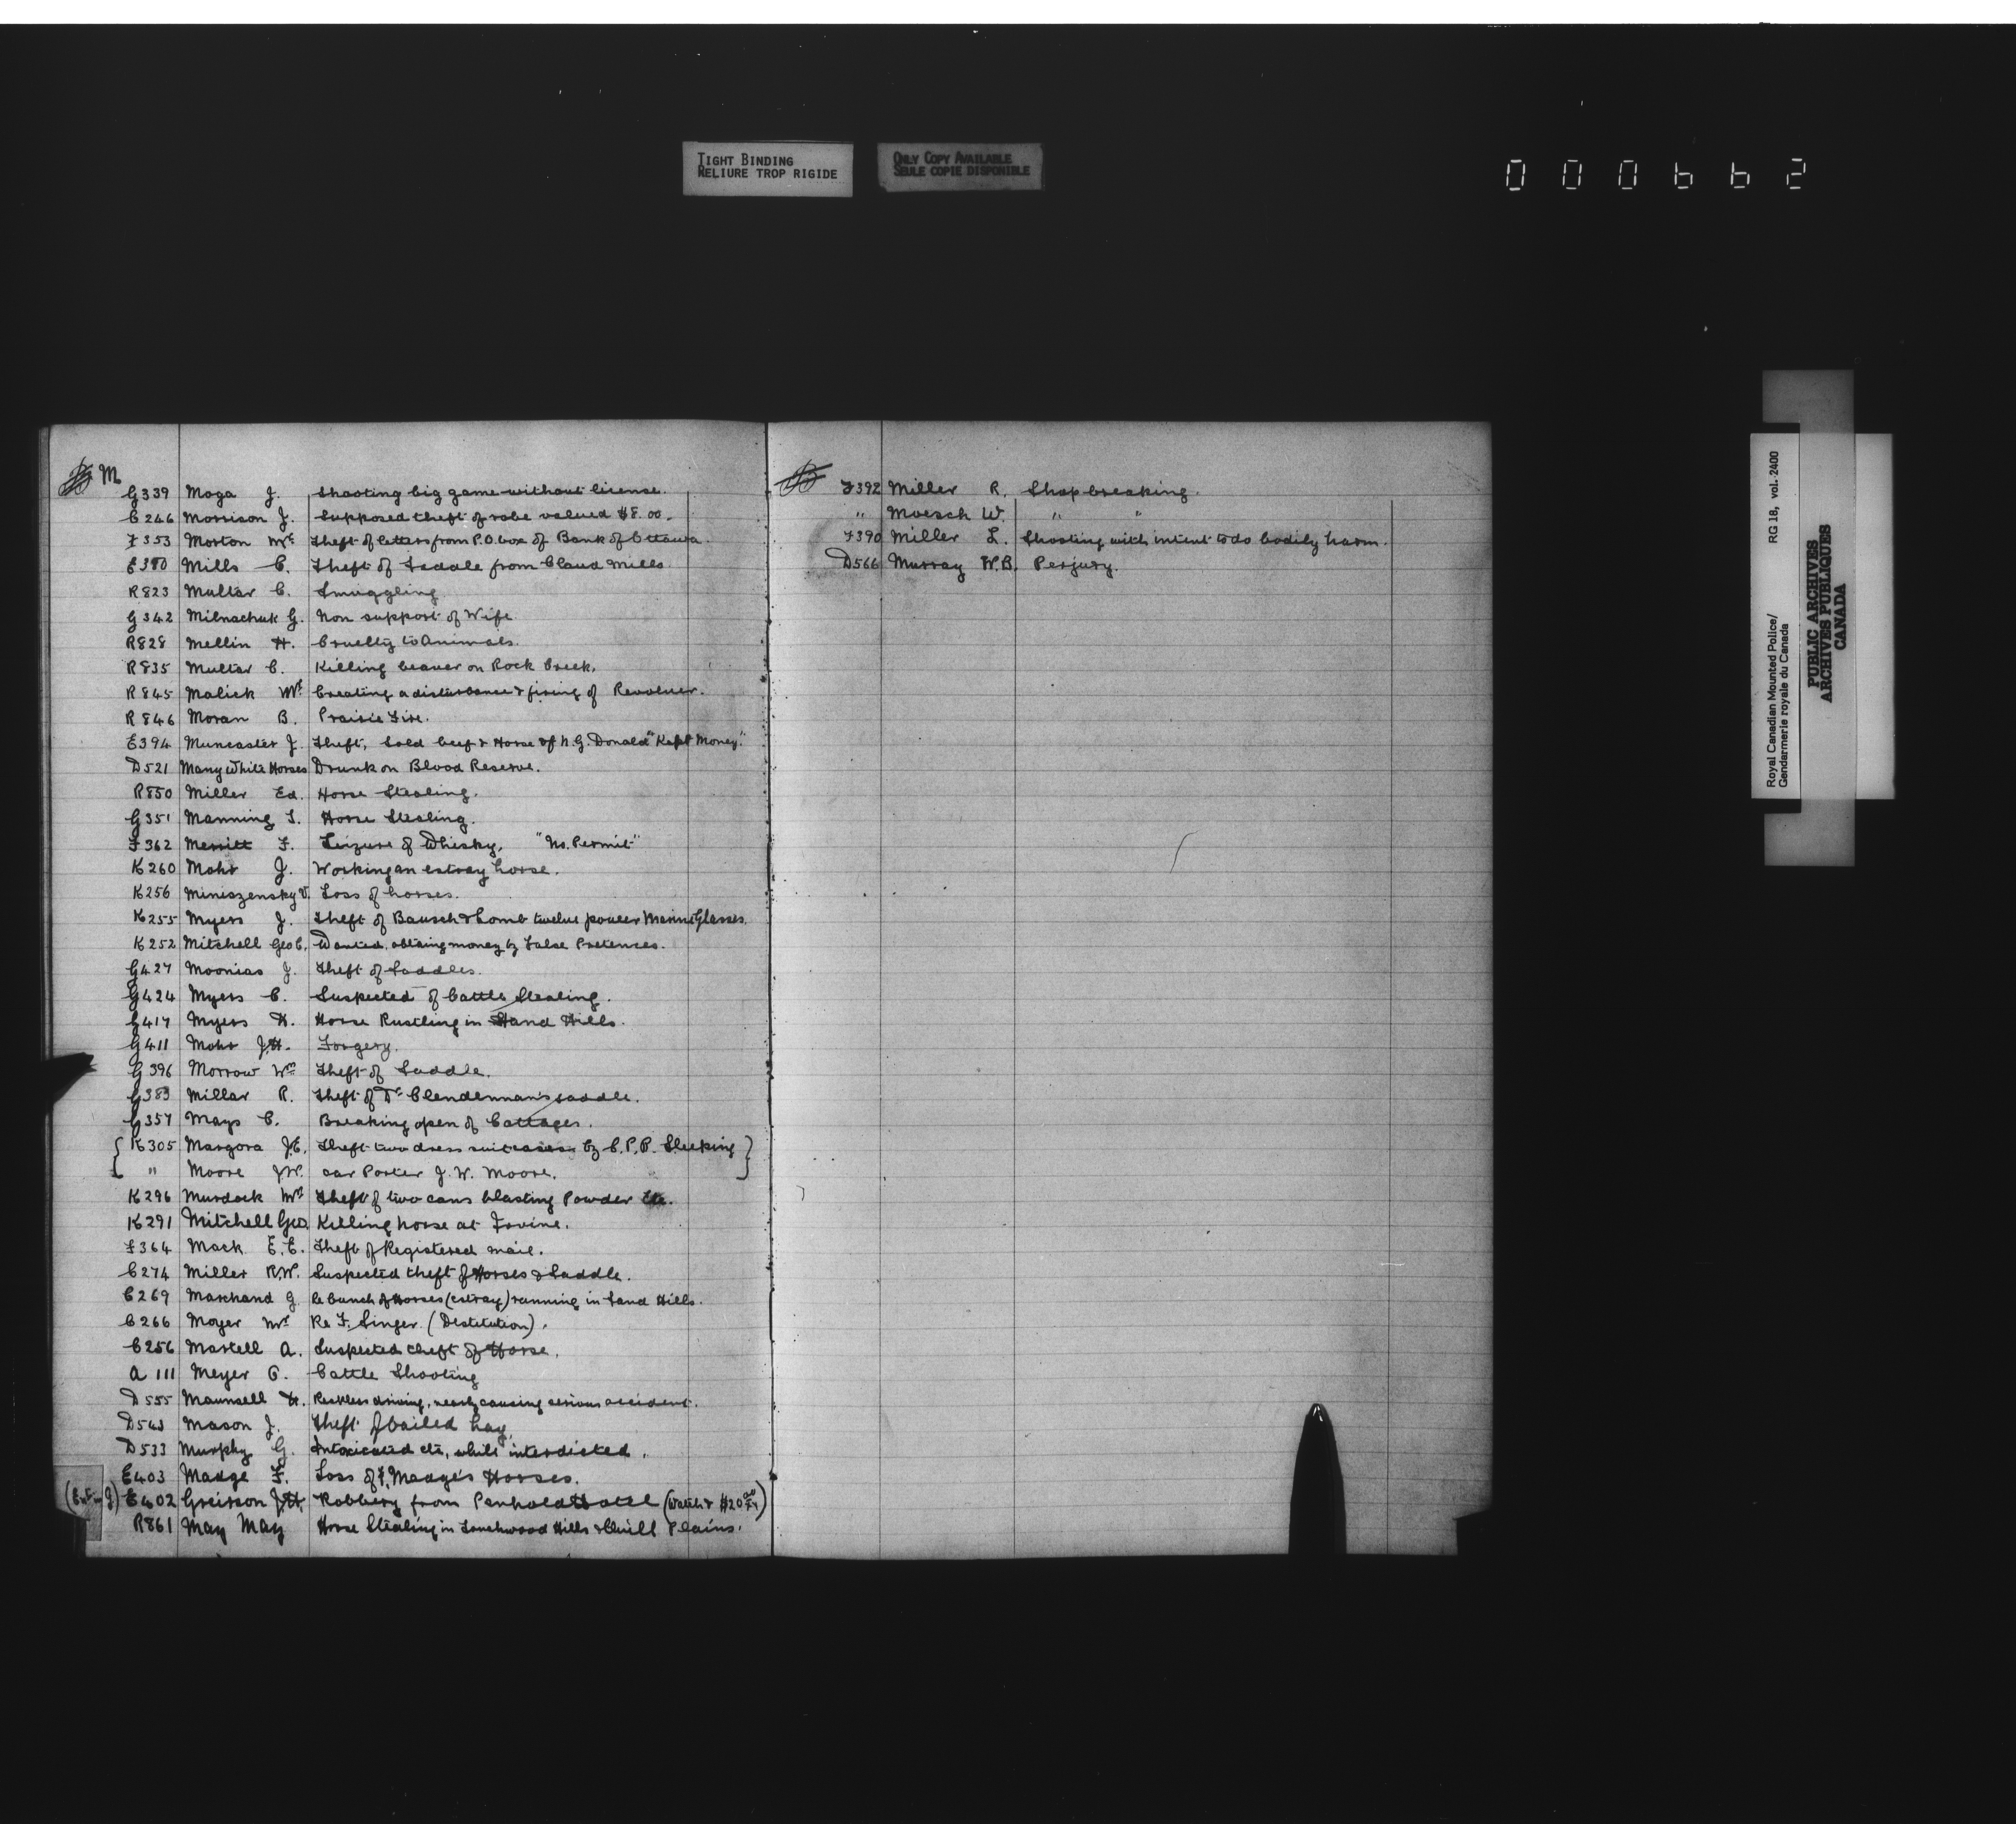 TIGHT BINDING
RELIURE TROP RIGIDE
ONLY COPY AVAILABLE
SEULE COPIE DISPONIBLE
000662
M
G339 Moga J. Shooting big game without license.
C246 Morrison J. Supposed theft of robe valued $8.00.
F353 Morton Mr Theft of letters from P.O. box of Bank of Ottawa.
E380 Mills C. Theft of Saddle from Claud Mills
R823 Multar C. Smuggling
G342 Milnachuk G. Non support of Wife
R828 Mellin H. Cruelty to Animals.
R835 Multar C. Killing beaver on Rock Creek.
R845 Malick Mr Creating a disturbance & firing of Revolver.
R846 Moran B. Prairie Fire.
E394 Muncaster J. Theft, Sold beef & Horse of N.G. Donald "Kept Money."
D521 Many White Horses Drunk on Blood Reserve.
R850 Miller Ed. Horse Stealing.
G351 Manning T. Horse Stealing.
F362 Merritt F. Seizure of Whisky, "No. Permit"
K260 Mohr J. Working an estray horse.
K256 Miniszensky V. Loss of horses.
K255 Myers J. Theft of Bausch & Lomb twelve power Marine Glasses.
K252 Mitchell Geo C. Wanted, obtaing money by False Pretences.
G427 Moonias J. Theft of Saddles.
G424 Myers C. Suspected of Cattle Stealing.
G417 Myers H. Horse Rustling in Hand Hills.
G411 Mohr J.H. Forgery.
G396 Morrow Wm Theft of Saddle.
G383 Millar R. Theft of Dr Clendennan's saddle.
G357 Mays C. Breaking open of Cottages.
{ K305 Margora J.C. Theft two dress suitcases by C.P.R. Sleeking }
" Moore J.W. car Porter J. W. Moore.
K296 Murdock Mr Theft of two cans blasting Powder Etc.
K291 Mitchell Geo. Killing horse at Irvine.
F364 Mack E.E. Theft of Registered mail.
C274 Miller R.W. Suspected theft of Horses & Saddle.
C269 Marchand G. Re bunch of Horses (estray) running in Sand Hills.
C266 Moyer Mr Re F. Singer (Destitution).
C256 Martell A. Suspected theft of Horse.
A 111 Meyer G. Cattle Shooting
D555 Maunsell H. Reckless driving, nearly causing serious accident.
D543 Mason J. Theft of bailed hay.
D533 Murphy G. Intoxicated etc, while interdicted.
E403 Madge F. Loss of F. Madge's Horses.
E402 Greirson J.H. Robbery from Penhold Hotel (Watch &
R861 May May Horse Stealing in Touchwood Hills & Quill Plains.
F392 Miller R. Shop breaking.
" Moesch W. " "
F390 Miller L. Shooting with intent to do bodily harm.
D566 Murray W.B. Perjury.
Royal Canadian Mounted Police/ RG 18, vol. 2400
Gendarmerie royale du Canada
PUBLIC ARCHIVES
ARCHIVES PUBLIQUES
CANADA